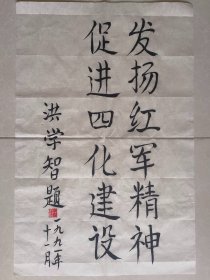 发扬红军精神
促进四化建设
洪学智题
一九九一年
十一月